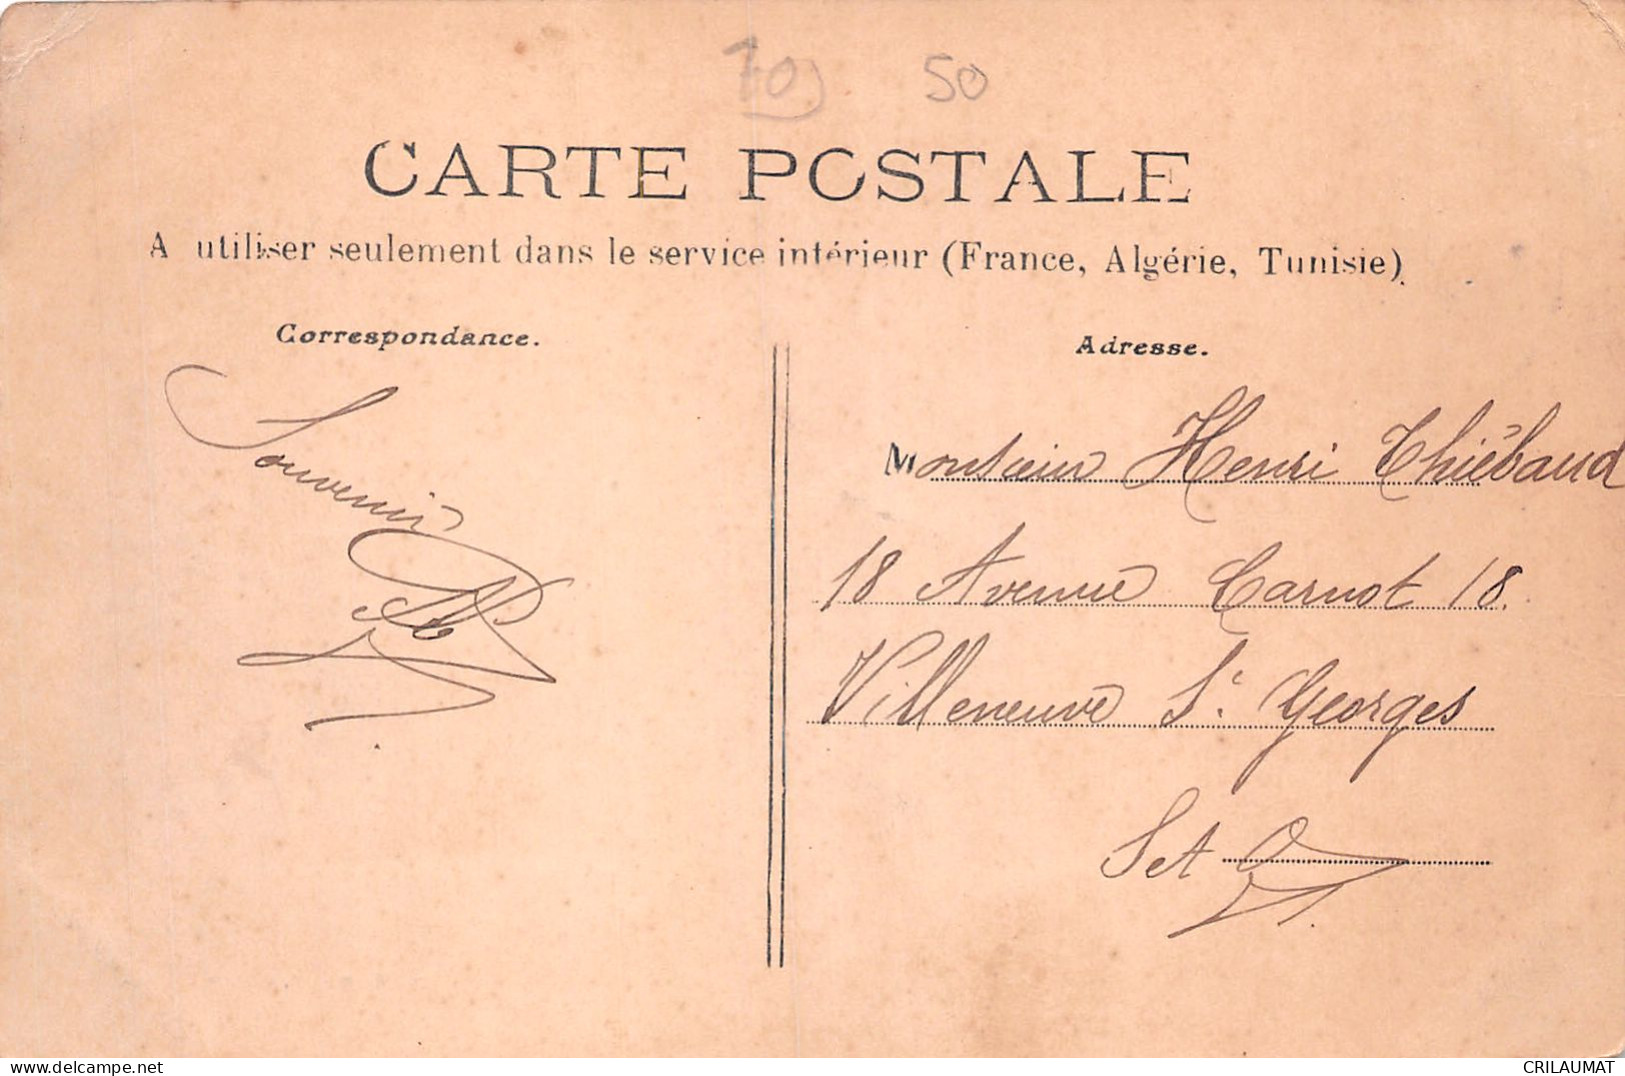 70 50
CARTE POSTALE
A utiliser seulement dans le service intérieur (France, Algérie, Tunisie)
Correspondance.
Adresse.
Souvenir
Monsieur Henri Thiébaud
18 Avenue Carnot 18.
Villeneuve St. Georges
Set O
CRILAUMAT